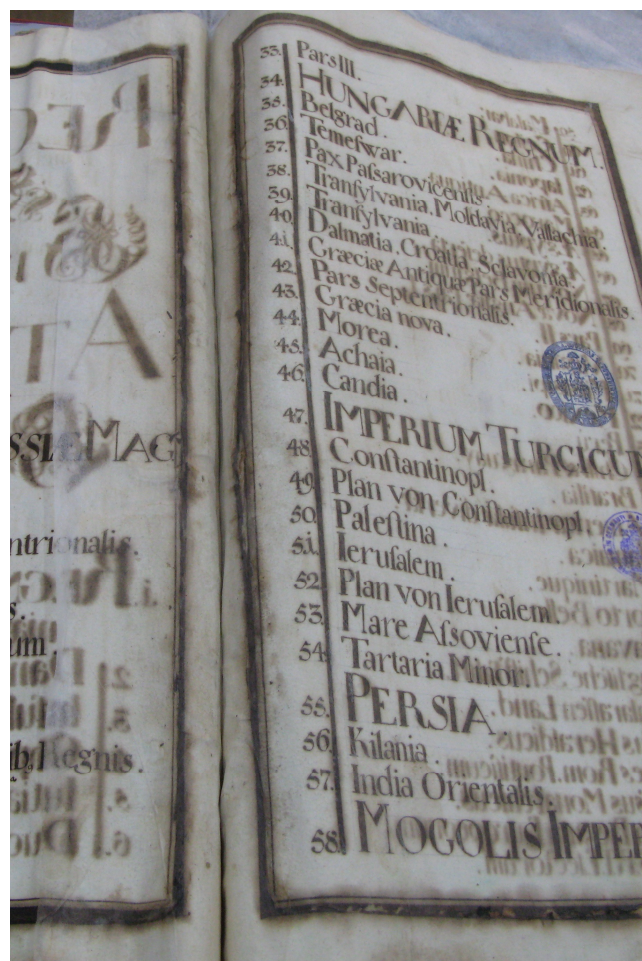 SSIÆ MAG
ntrionalis.
s.
um.
ib. Regnis.
33. Pars III.
34. HUNGARIÆ REGNUM.
35. Belgrad.
36. Temeſwar.
37. Pax Paſsarovicenſis.
38. Tranſylvania, Moldavia, Vallachia.
39. Tranſylvania
40. Dalmatia, Croatia, Sclavonia.
41. Græciæ Antiquæ Pars Meridionalis.
42. Pars Septentrionalis.
43. Græcia nova.
44. Morea.
45. Achaia.
46. Candia.
47. IMPERIUM TURCICU
48. Conſtantinopl.
49. Plan von Conſtantinopl.
50. Paleſtina.
51. Ieruſalem.
52. Plan von Ieruſalem.
53. Mare Aſsovienſe.
54. Tartaria Minor.
55. PERSIA.
56. Kilania.
57. India Orientalis.
58. MOGOLIS IMPER